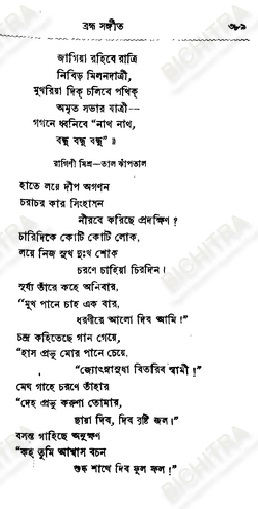 ব্রহ্ম সঙ্গীত ৩৮৯
জাগিয়া রহিবে রাত্রি
নিবিড় মিলনদাত্রী,
মুখরিয়া দিক্ চলিবে পথিক্
অমৃত সভার যাত্রী—
গগনে ধ্বনিবে “নাথ নাথ,
বন্ধু বন্ধু বন্ধু” ॥
রাগিণী মিশ্র—তাল ঝাঁপতাল
হাতে লয়ে দীপ অগণন
চরাচর কার সিংহাসন
নীরবে করিছে প্রদক্ষিণ ?
চারিদিকে কোটি কোটি লোক,
লয়ে নিজ সুখ দুঃখ শোক
চরণে চাহিয়া চিরদিন।
সূর্য্য তাঁরে কহে অনিবার,
“মুখ পানে চাহ এক বার,
ধরণীরে আলো দিব আমি !”
চন্দ্র কহিতেছে গান গেয়ে,
“হাস প্রভু মোর পানে চেয়ে,
“জ্যোৎস্নাসুধা বিতরিব স্বামী !”
মেঘ গাহে চরণে তাঁহার
“দেহ প্রভু করুণা তোমার,
ছায়া দিব, দিব বৃষ্টি জল।”
বসন্ত গাহিছে অনুক্ষণ
“কহ তুমি আশ্বাস বচন
শুষ্ক শাখে দিব ফুল ফল !”
BICHITRA
BICHITRA
BICHITRA
BICHITRA